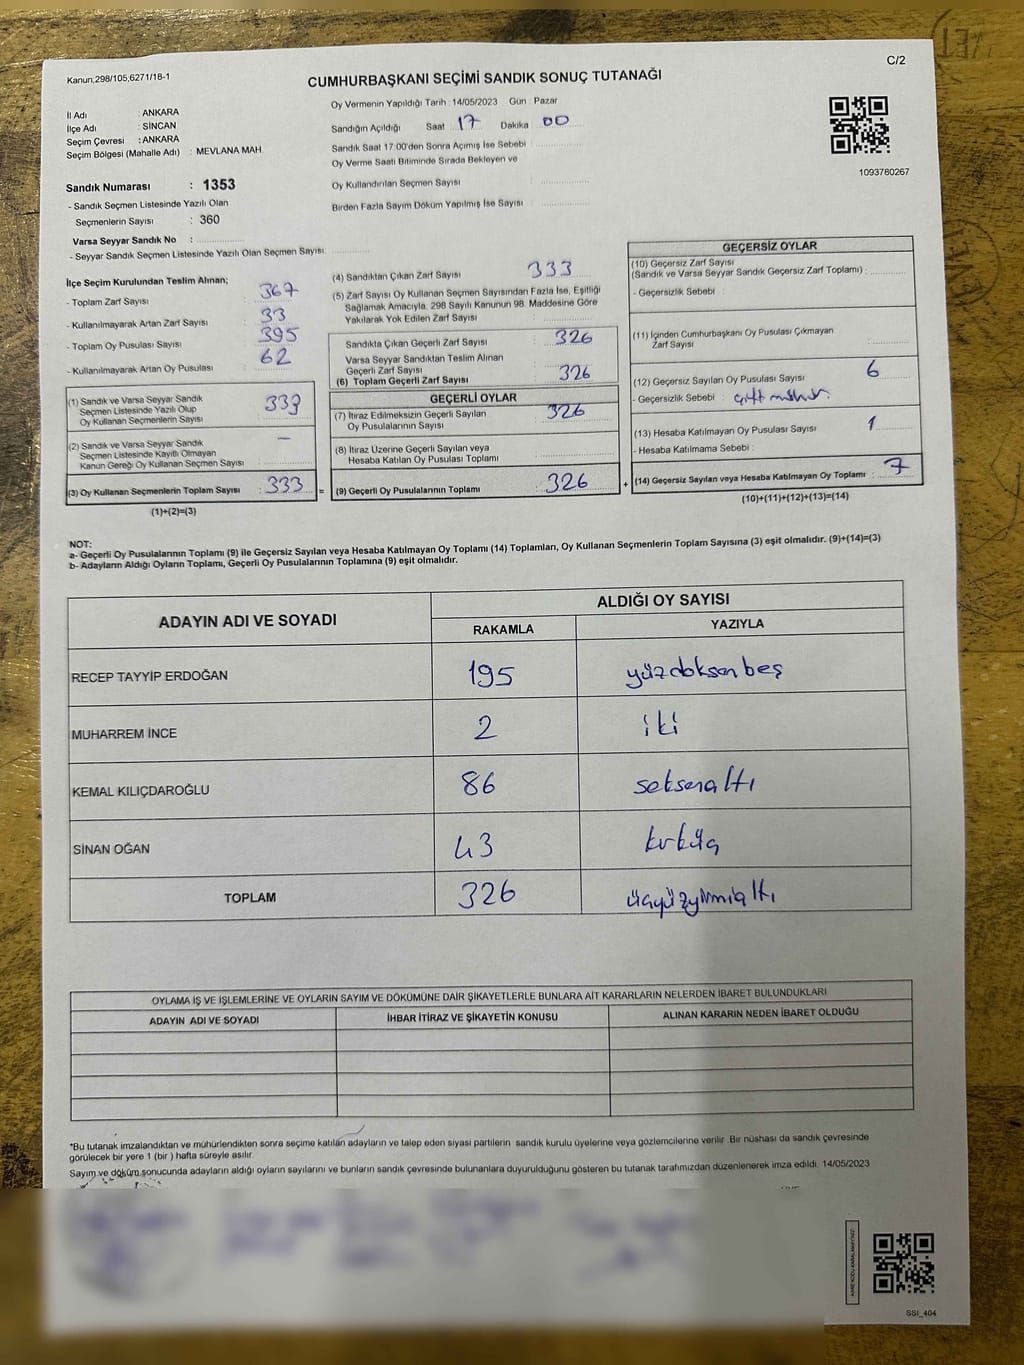 C/2
Kanun,298/105,6271/18-1
CUMHURBAŞKANI SEÇİMİ SANDIK SONUÇ TUTANAĞI
İl Adı : ANKARA
İlçe Adı : SİNCAN
Seçim Çevresi : ANKARA
Seçim Bölgesi (Mahalle Adı) : MEVLANA MAH.
Sandık Numarası : 1353
- Sandık Seçmen Listesinde Yazılı Olan
Seçmenlerin Sayısı : 360
Varsa Seyyar Sandık No :
- Seyyar Sandık Seçmen Listesinde Yazılı Olan Seçmen Sayısı:
Oy Vermenin Yapıldığı Tarih : 14/05/2023 Gün : Pazar
Sandığın Açıldığı Saat 17 Dakika 00
Sandık Saat 17.00'den Sonra Açımış İse Sebebi :
Oy Verme Saati Bitiminde Sırada Bekleyen ve
Oy Kullandırılan Seçmen Sayısı :
Birden Fazla Sayım Döküm Yapılmış İse Sayısı :
1093780267
İlçe Seçim Kurulundan Teslim Alınan;
- Toplam Zarf Sayısı : 367
- Kullanılmayarak Artan Zarf Sayısı : 33
- Toplam Oy Pusulası Sayısı : 395
- Kullanılmayarak Artan Oy Pusulası : 62
(1) Sandık ve Varsa Seyyar Sandık
Seçmen Listesinde Yazılı Olup
Oy Kullanan Seçmenlerin Sayısı : 333
(2) Sandık ve Varsa Seyyar Sandık
Seçmen Listesinde Kayıtlı Olmayan
Kanun Gereği Oy Kullanan Seçmen Sayısı : —
(3) Oy Kullanan Seçmenlerin Toplam Sayısı : 333 =
(1)+(2)=(3)
(4) Sandıktan Çıkan Zarf Sayısı : 333
(5) Zarf Sayısı Oy Kullanan Seçmen Sayısından Fazla İse, Eşitliği
Sağlamak Amacıyla, 298 Sayılı Kanunun 98. Maddesine Göre
Yakılarak Yok Edilen Zarf Sayısı :
Sandıkta Çıkan Geçerli Zarf Sayısı : 326
Varsa Seyyar Sandıktan Teslim Alınan
Geçerli Zarf Sayısı
(6) Toplam Geçerli Zarf Sayısı : 326
GEÇERLİ OYLAR
(7) İtiraz Edilmeksizin Geçerli Sayılan
Oy Pusulalarının Sayısı : 326
(8) İtiraz Üzerine Geçerli Sayılan veya
Hesaba Katılan Oy Pusulası Toplamı :
(9) Geçerli Oy Pusulalarının Toplamı : 326 +
GEÇERSİZ OYLAR
(10) Geçersiz Zarf Sayısı
(Sandık ve Varsa Seyyar Sandık Geçersiz Zarf Toplamı) :
- Geçersizlik Sebebi :
(11) İçinden Cumhurbaşkanı Oy Pusulası Çıkmayan
Zarf Sayısı :
(12) Geçersiz Sayılan Oy Pusulası Sayısı : 6
- Geçersizlik Sebebi : çift mühür.
(13) Hesaba Katılmayan Oy Pusulası Sayısı : 1
- Hesaba Katılmama Sebebi :
(14) Geçersiz Sayılan veya Hesaba Katılmayan Oy Toplamı : 7
(10)+(11)+(12)+(13)=(14)
NOT:
a- Geçerli Oy Pusulalarının Toplamı (9) ile Geçersiz Sayılan veya Hesaba Katılmayan Oy Toplamı (14) Toplamları, Oy Kullanan Seçmenlerin Toplam Sayısına (3) eşit olmalıdır. (9)+(14)=(3)
b- Adayların Aldığı Oyların Toplamı, Geçerli Oy Pusulalarının Toplamına (9) eşit olmalıdır.
ADAYIN ADI VE SOYADI ALDIĞI OY SAYISI
RAKAMLA YAZIYLA
RECEP TAYYİP ERDOĞAN 195 yüzdoksanbeş
MUHARREM İNCE 2 iki
KEMAL KILIÇDAROĞLU 86 seksenaltı
SİNAN OĞAN 43 kırküç
TOPLAM 326 üçyüzyirmialtı
OYLAMA İŞ VE İŞLEMLERİNE VE OYLARIN SAYIM VE DÖKÜMÜNE DAİR ŞİKAYETLERLE BUNLARA AİT KARARLARIN NELERDEN İBARET BULUNDUKLARI
ADAYIN ADI VE SOYADI İHBAR İTİRAZ VE ŞİKAYETİN KONUSU ALINAN KARARIN NEDEN İBARET OLDUĞU
*Bu tutanak imzalandıktan ve mühürlendikten sonra seçime katılan adayların ve talep eden siyasi partilerin sandık kurulu üyelerine veya gözlemcilerine verilir. Bir nüshası da sandık çevresinde
görülecek bir yere 1 (bir) hafta süreyle asılır.
Sayım ve döküm sonucunda adayların aldığı oyların sayılarını ve bunların sandık çevresinde bulunanlara duyurulduğunu gösteren bu tutanak tarafımızdan düzenlenerek imza edildi. 14/05/2023
SSI_404